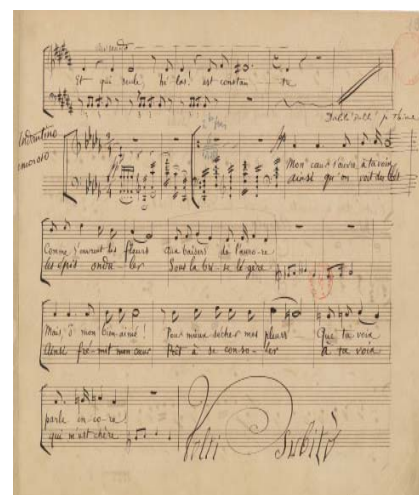 Et qui seule, hélas! est constan - te
Andantino
Mon cœur s'ouvre à ta voix
ainsi qu'on voit des blés
Comme s'ouvrent les fleurs Aux baisers de l'auro-re
les épis ondu-ler Sous la bri-se légère
Mais, ô mon bien-aimé! Pour mieux sécher mes pleurs Que ta voix
Ainsi fré-mit mon cœur Prêt à se conso-ler à ta voix
parle en-co-re!
qui m'est chère
Volti Subito